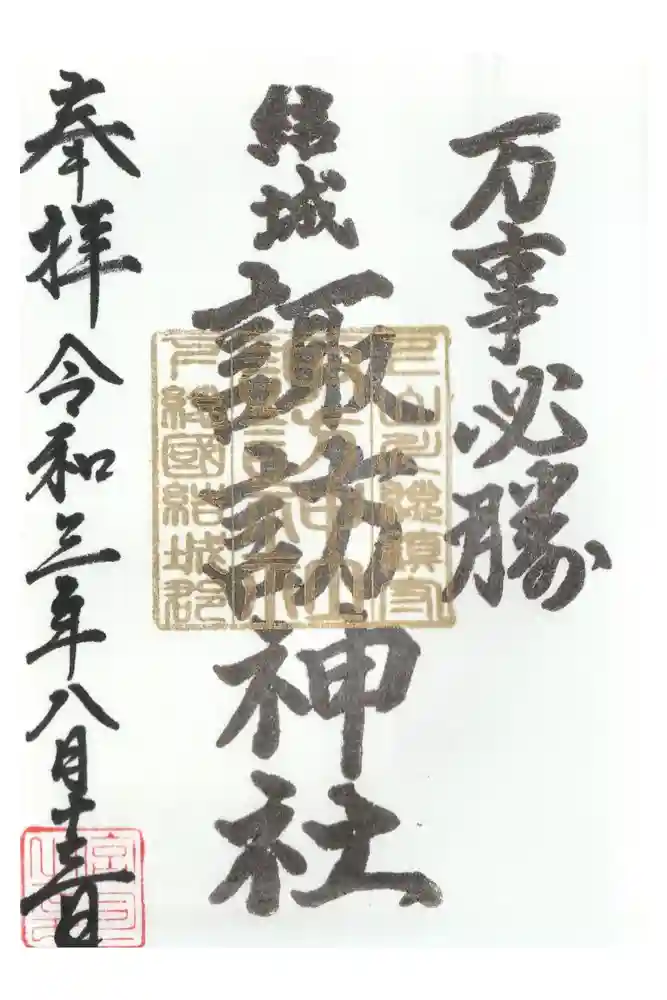 万事必勝
結城
諏訪神社
下総國結城郡
奉拝 令和三年八月十三日